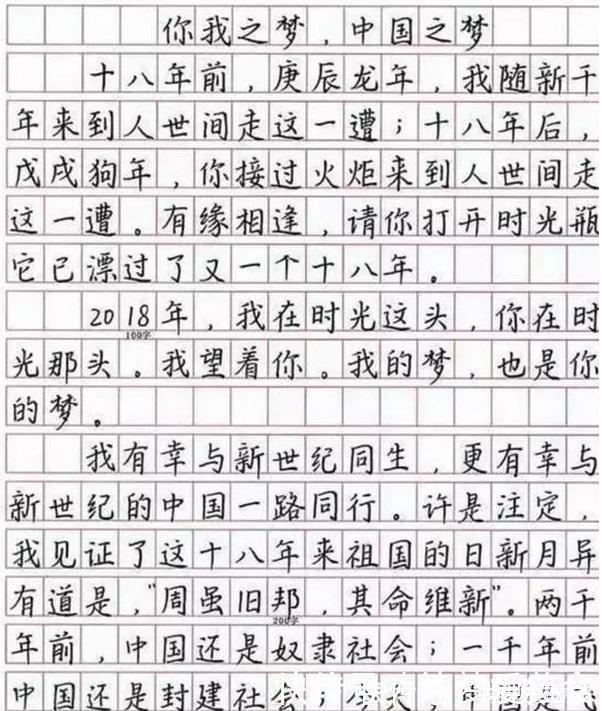 你我之梦，中国之梦
十八年前，庚辰龙年，我随新千
年来到人世间走这一遭；十八年后，
戊戌狗年，你接过火炬来到人世间走
这一遭。有缘相逢，请你打开时光瓶
它已漂过了又一个十八年。
2018年，我在时光这头，你在时
100字
光那头。我望着你。我的梦，也是你
的梦。
我有幸与新世纪同生，更有幸与
新世纪的中国一路同行。许是注定，
我见证了这十八年来祖国的日新月异
有道是，"周虽旧邦，其命维新"。两千
200字
年前，中国还是奴隶社会；一千年前
中国还是封建社会；今天，中国是